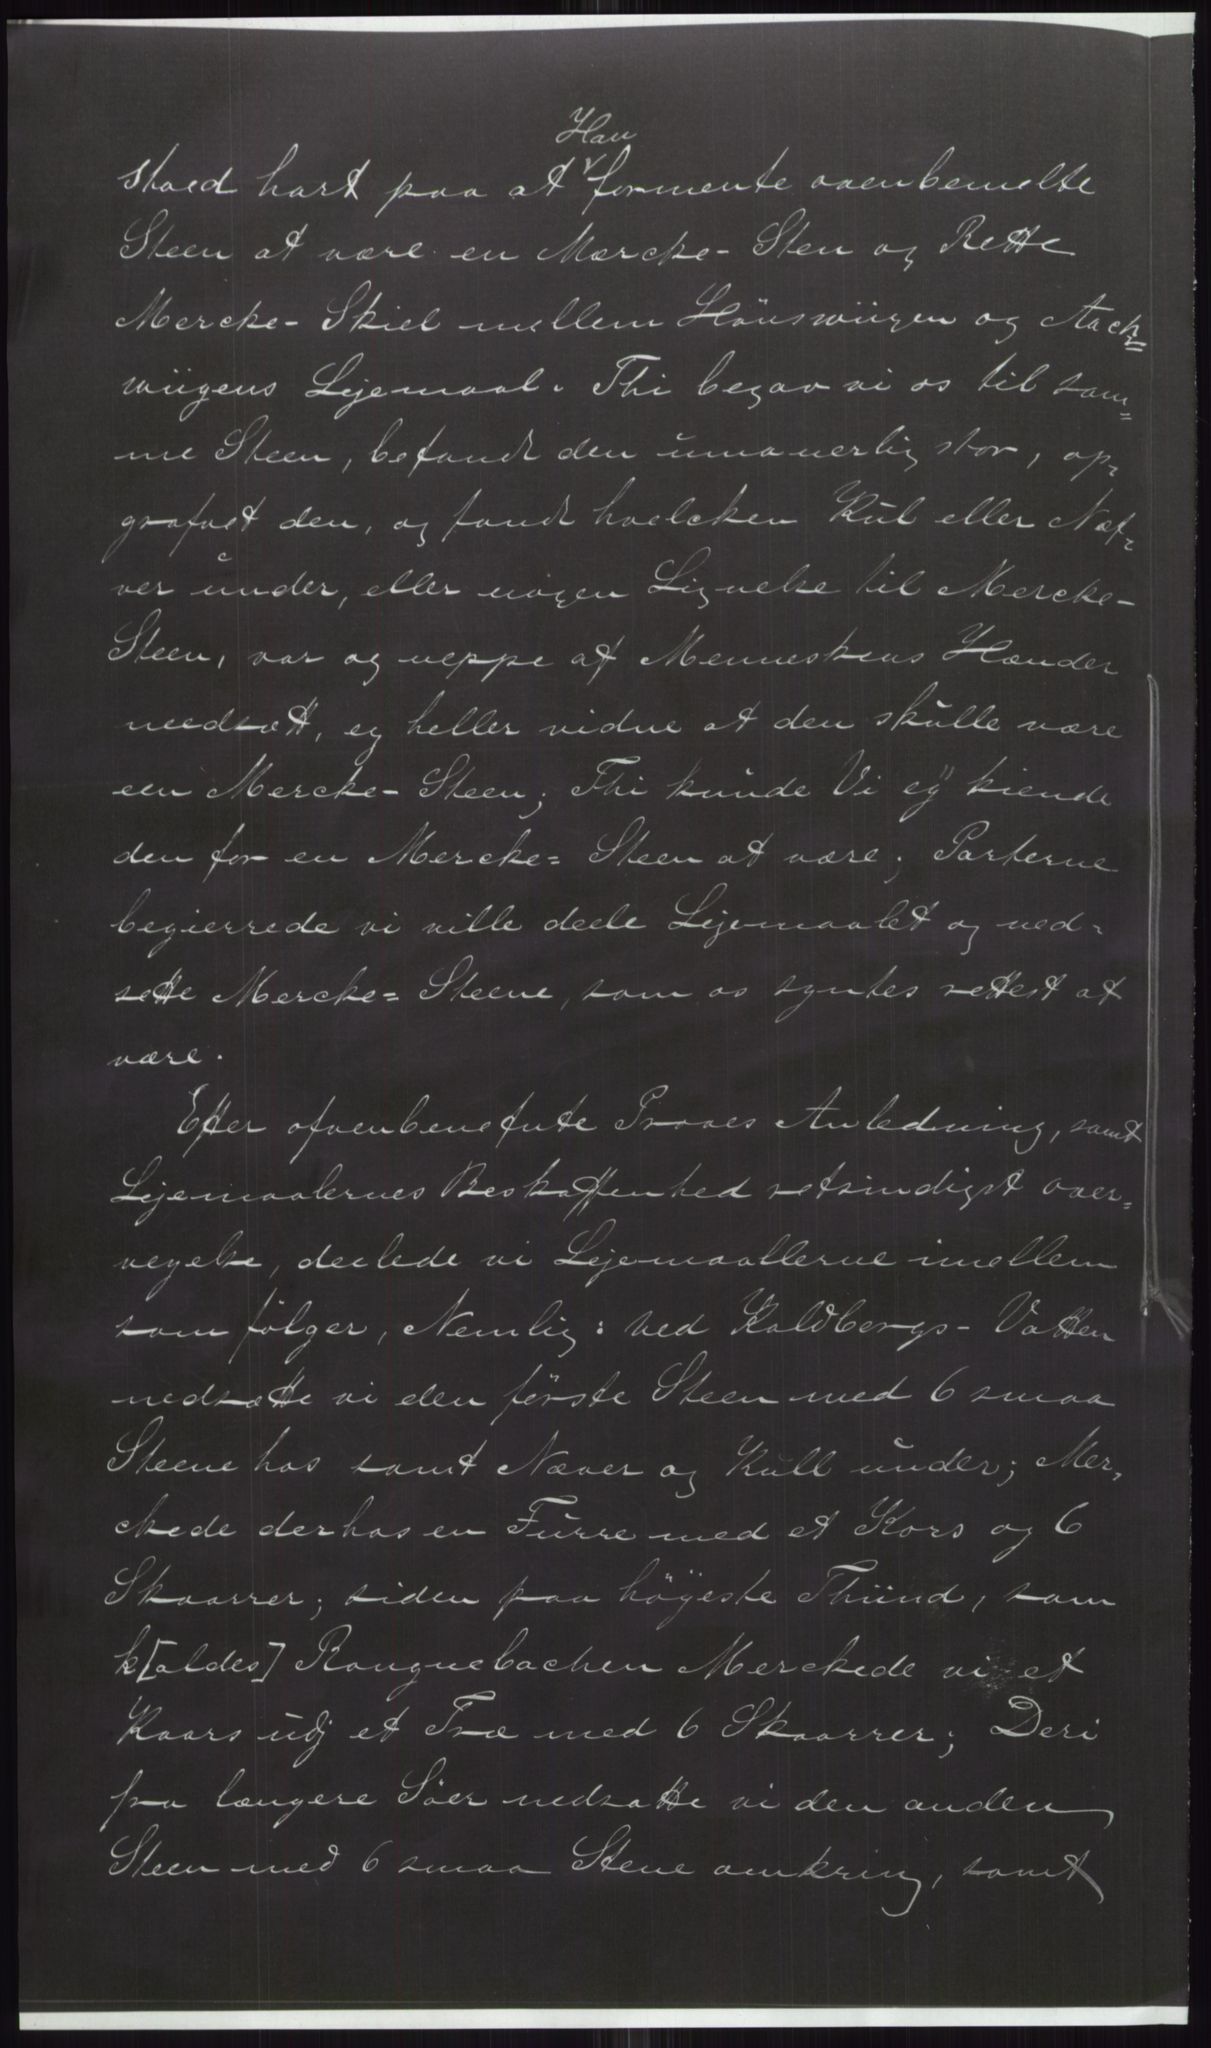 Han
stoed hart paa at formente ovenbemelte
Steen at være en Mærcke- Sten og Rette
Mercke- Skiel mellem Hönswiigen og Aack=
wiigens Lejemaal. Thi begav vi os til sam=
me Steen, befandt den ümanerlig stor, op=
grafvet den, og fandt hvelcken Kül eller Næf=
ver ünder, eller nogen Lignelse til Mercke-
Steen, var og neppe af Menneskens Hænder
needsatt, ej heller vidne at den skülle være
een Mercke- Steen; Thi künde Vi eÿ kiende
den for en Mercke= Steen at være. Parterne
begierrede vi ville deele Lejemaalet og ned=
sette Mercke= Steene, som os syntes rettest at
være.
Efter ofvenbenefnte Proves Anledning, samt
Lejemaalernes Beskaffenhed retsindigst over=
vegelse, deelede vi Lejemaallerne imellem
som fölger, Nemlig: ved Koldbergs- Vatten
nedsatte vi den förste Steen med 6 smaa
Steene hos samt Næver og Küll ünder; Mer=
ckede derhos en Fürre med et Kors og 6
Skaarrer; siden paa höÿeste Thünd, som
k[aldes] Rougnebachen Merckede vi et
Kaars udj et Træ med 6 Skaarrer; Deri
fra længere Söer nedsatte vi den anden
Steen med 6 smaa Stene omkring, samt